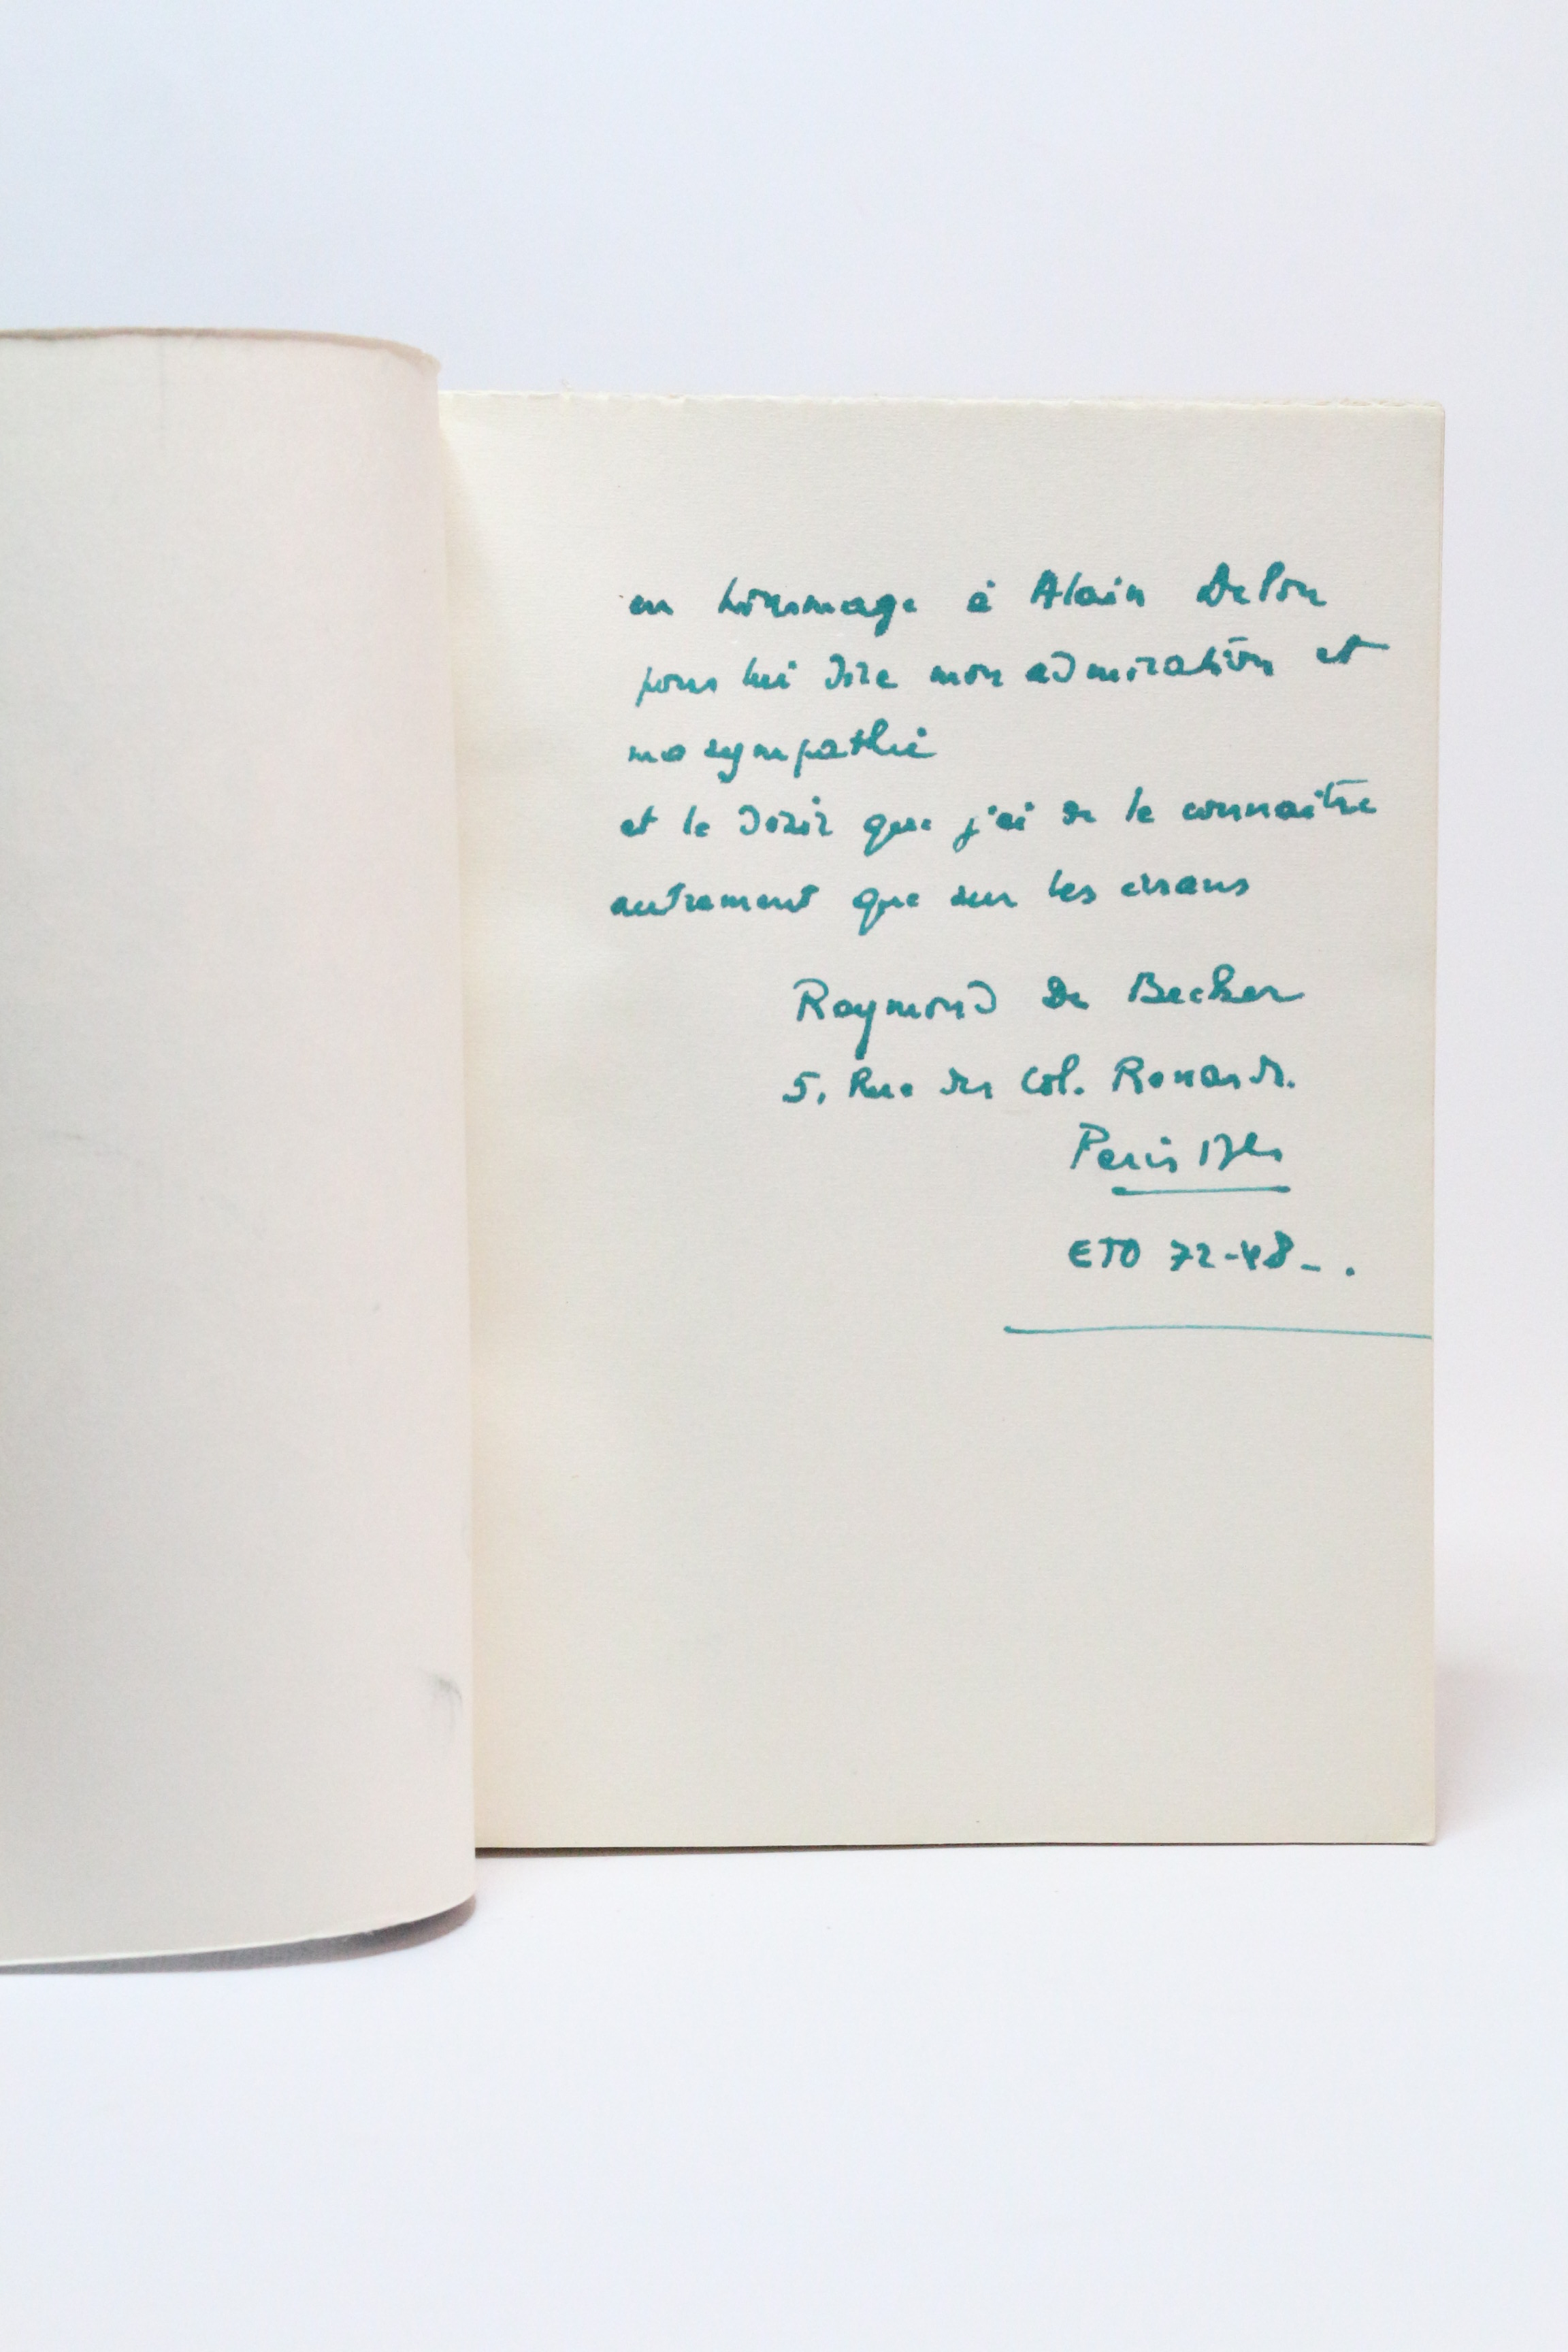 en hommage à Alain Delon
pour lui dire mon admiration et
ma sympathie
et le désir que j'ai de le connaître
autrement que sur les écrans
Raymond De Becker
5, Rue du Col. Renard.
Paris 17e
ETO 72-48-.